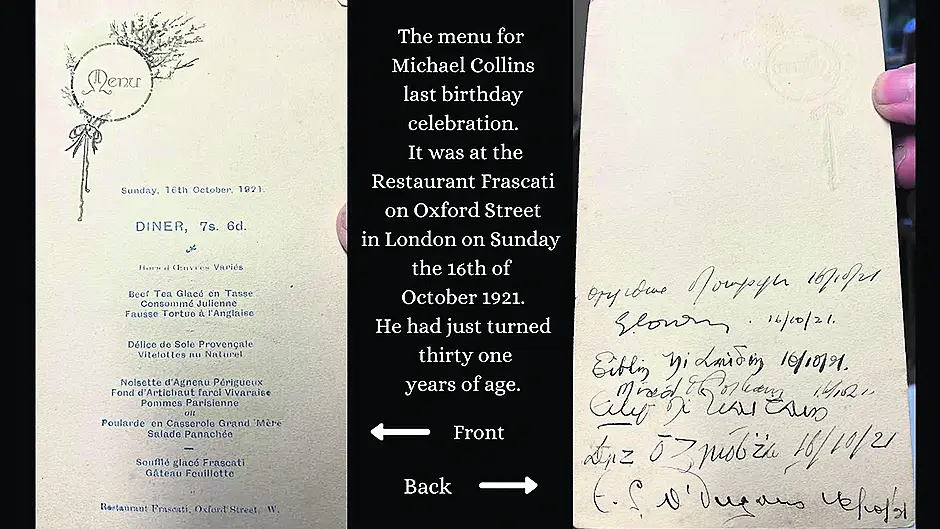 Menu
Sunday, 16th October, 1921.
DINER, 7s. 6d.
Hors d'Œuvres Variés
Beef Tea Glacé en Tasse
Consommé Julienne
Fausse Tortue à l'Anglaise
Délice de Sole Provençale
Vitelottes au Naturel
Noisette d'Agneau Périgueux
Fond d'Artichaut farci Vivaraise
Pommes Parisienne
ou
Poularde en Casserole Grand 'Mère
Salade Panachée
Soufflé glacé Frascati
Gâteau Feuillette
Restaurant Frascati, Oxford Street, W.
The menu for
Michael Collins
last birthday
celebration.
It was at the
Restaurant Frascati
on Oxford Street
in London on Sunday
the 16th of
October 1921.
He had just turned
thirty one
years of age.
Front
Back
16/10/21
16/10/21.
16/10/21.
16/10/21
16/10/21